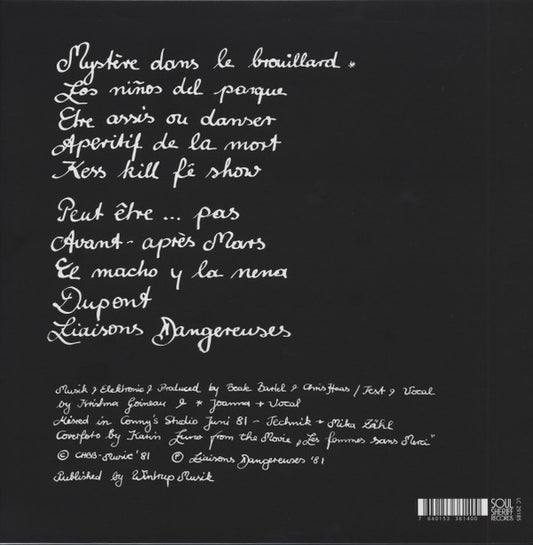 Mystère dans le brouillard *
Los niños del parque
Etre assis ou danser
Aperitif de la mort
Kess kill fê show
Peut être ... pas
Avant-après Mars
El macho y la nena
Dupont
Liaisons Dangereuses
Musik & Elektronic & Produced by Beate Bartel & Chris Haas / Text & Vocal
by Krishna Goineau & * Joanna + Vocal
Mixed in Conny's Studio Juni 81 - Technik + Mika Zähl
Coverfoto by Karin Luno from the Movie „Les femmes sans Merci"
© CHBB-Music '81 ℗ Liaisons Dangereuses '81
Published by Wintrup Musik
7 640153 361400
SOUL
SHERIFF
RECORDS
LC 29185